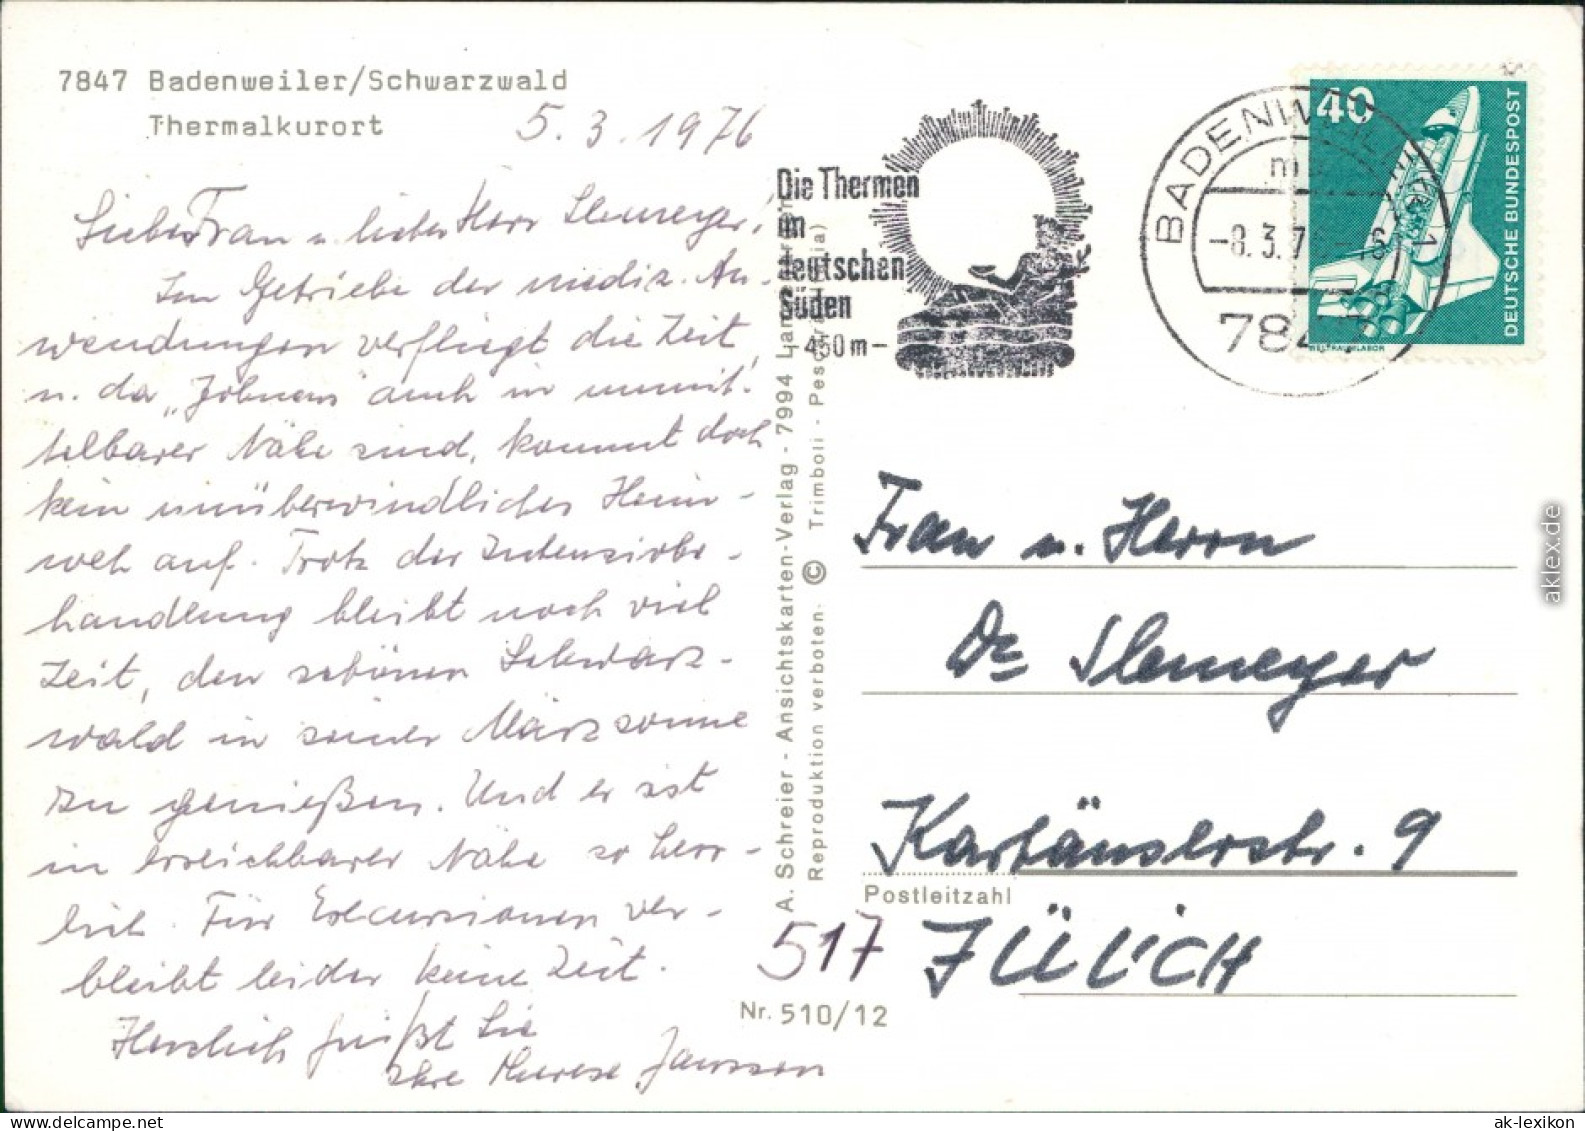 7847 Badenweiler/Schwarzwald
Thermalkurort
5.3.1976
Liebe Frau u. lieber Herr Slemeyer!
Im Getriebe der mediz. An-
wendungen verfliegt die Zeit,
u. da „Johnens" auch in unmit-
telbarer Nähe sind, kommt doch
kein unüberwindliches Heim-
weh auf. Trotz der Intensivbe-
handlung bleibt noch viel
Zeit, den schönen Schwarz-
wald in seiner Märzsonne
zu genießen. Und er ist
in erreichbarer Nähe so herr-
lich. Für Exkursionen ver-
bleibt leider keine Zeit.
Herzlich grüßt Sie
Ihre Therese Janssen
Die Thermen
im
deutschen
Süden
- 450 m -
BADENWEILER 1
-8.3.76
7847
40
DEUTSCHE BUNDESPOST
WELTRAUMLABOR
A. Schreier - Ansichtskarten-Verlag - 7994
Reproduktion verboten. © Trimboli - Pescara
Frau u. Herrn
Dr Slemeyer
Kartäuserstr. 9
Postleitzahl
517 JÜLICH
Nr. 510/12
aklex.de
ak-lexikon